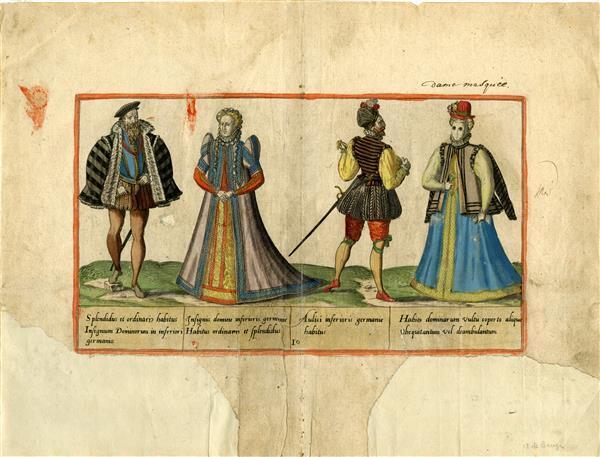 dame masquée.
Splendidus et ordinaris habitus
Insignium Dominorum in inferiori
germanie
Insignis domine inferioris germanie
Habitus ordinaris et splendidus
Aulici inferioris germanie
habitus
10
Habitus dominarum vultu coperto aliquo
Obequitantum vel deambulantum